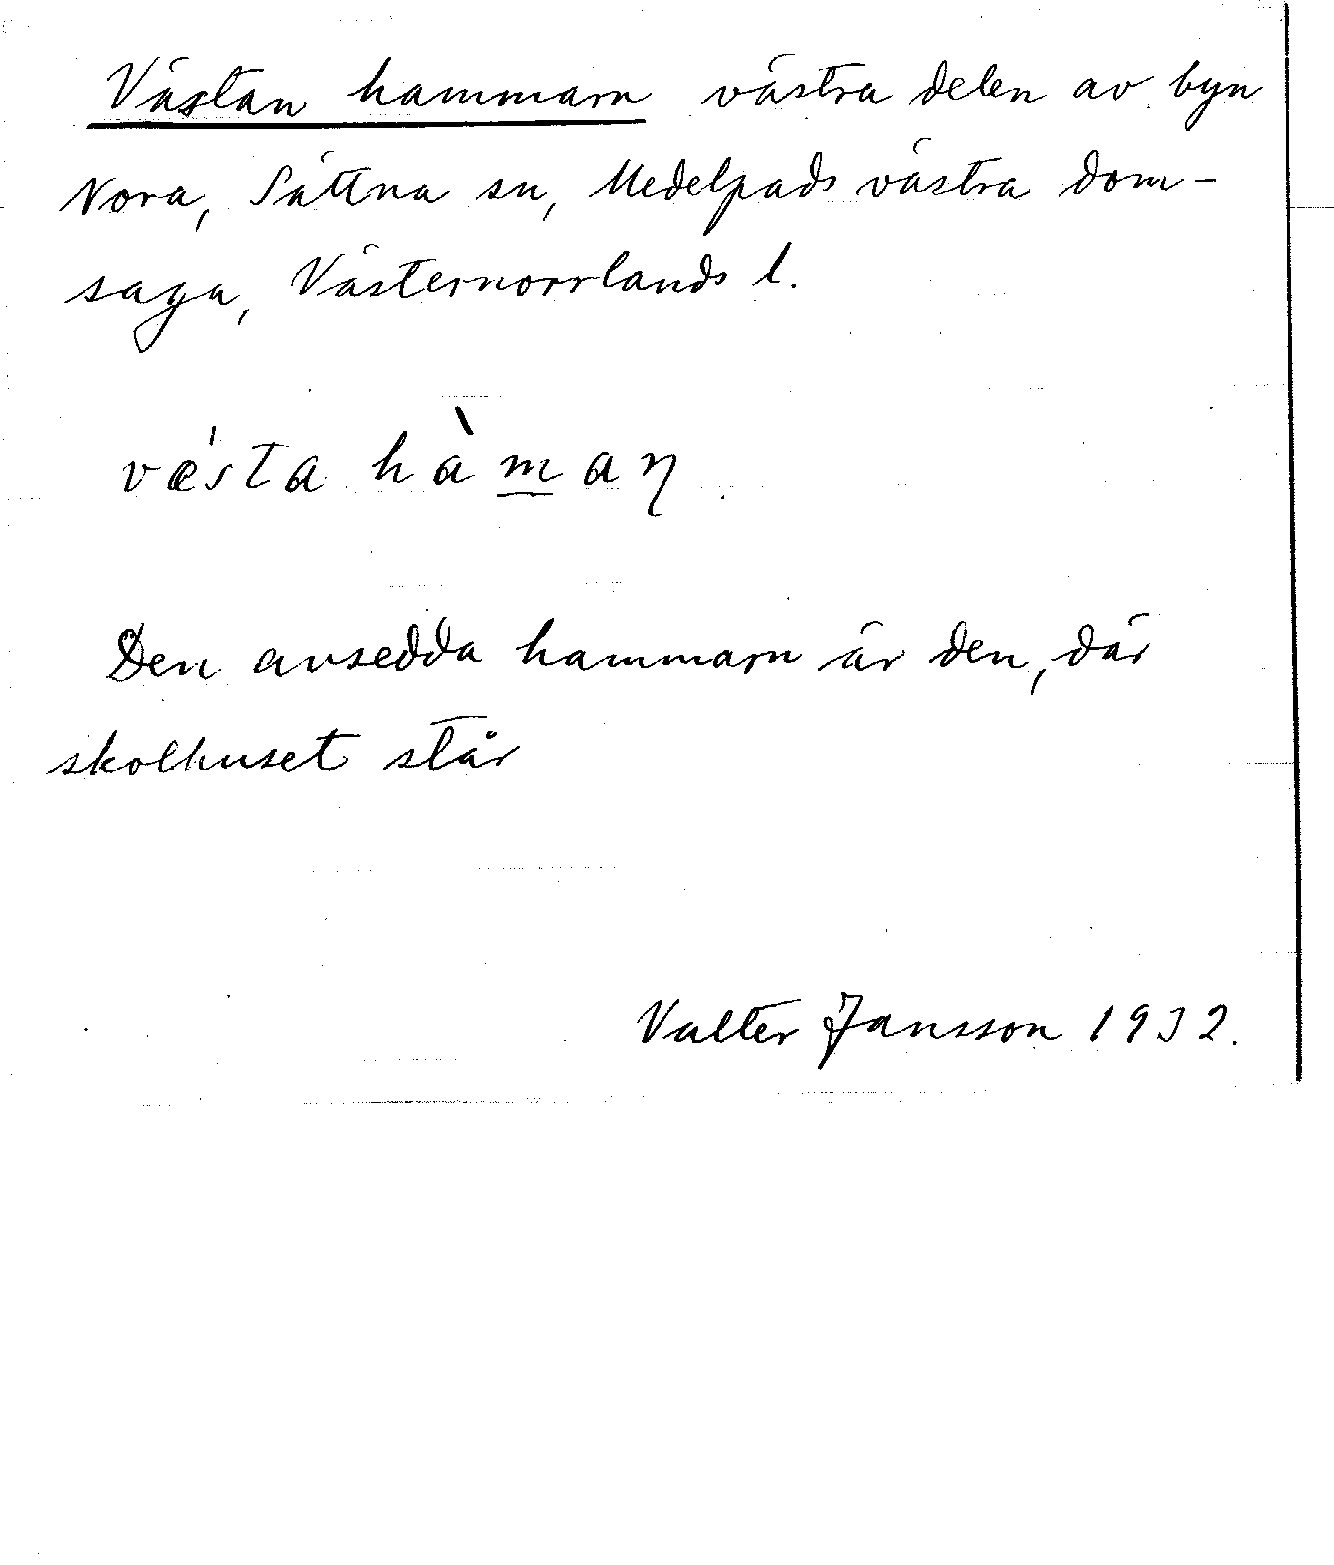 Västan hammarn västra delen av byn
Nora, Sättna sn, Medelpads västra dom-
saga, Västernorrlands l.
væ´sta hàmaɳ
Den avsedda hammarn är den, där
skolhuset står
Valter Jansson 1932.